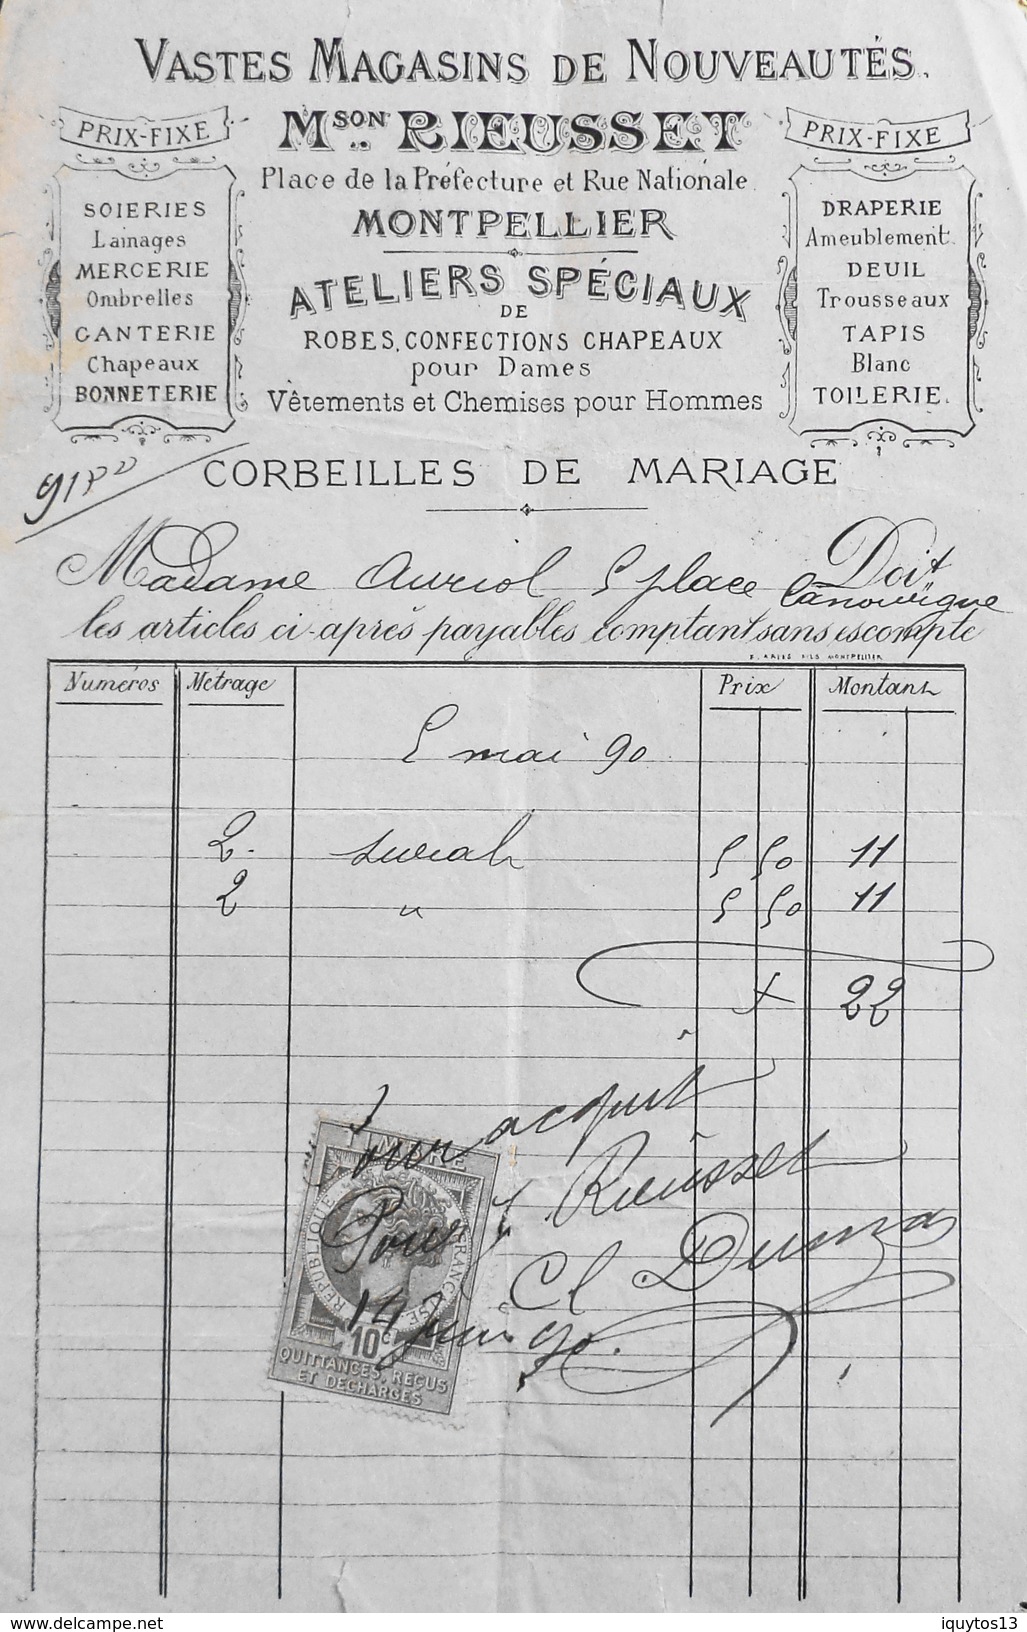 VASTES MAGASINS DE NOUVEAUTÉS.
PRIX-FIXE
MSON RIEUSSET
PRIX-FIXE
Place de la Préfecture et Rue Nationale
MONTPELLIER
SOIERIES
Lainages
MERCERIE
Ombrelles
GANTERIE
Chapeaux
BONNETERIE
DRAPERIE
Ameublement
DEUIL
Trousseaux
TAPIS
Blanc
TOILERIE.
ATELIERS SPÉCIAUX
DE
ROBES, CONFECTIONS CHAPEAUX
pour Dames
Vêtements et Chemises pour Hommes
CORBEILLES DE MARIAGE
Madame Auriol 5 place Canourgue Doit
les articles ci-après payables comptant sans escompte
F. ARIÈS FILS MONTPELLIER
Numéros Métrage Prix Montant
5 mai 90
2. surah 5 50 11
2 " 5 50 11
22
Pour acquit
Pour Rieusset
Cl Dumas
14 Juin 90.
TIMBRE
RÉPUBLIQUE FRANÇAISE
10 C
QUITTANCES, REÇUS
ET DÉCHARGES
delcampe.net
iquytos13